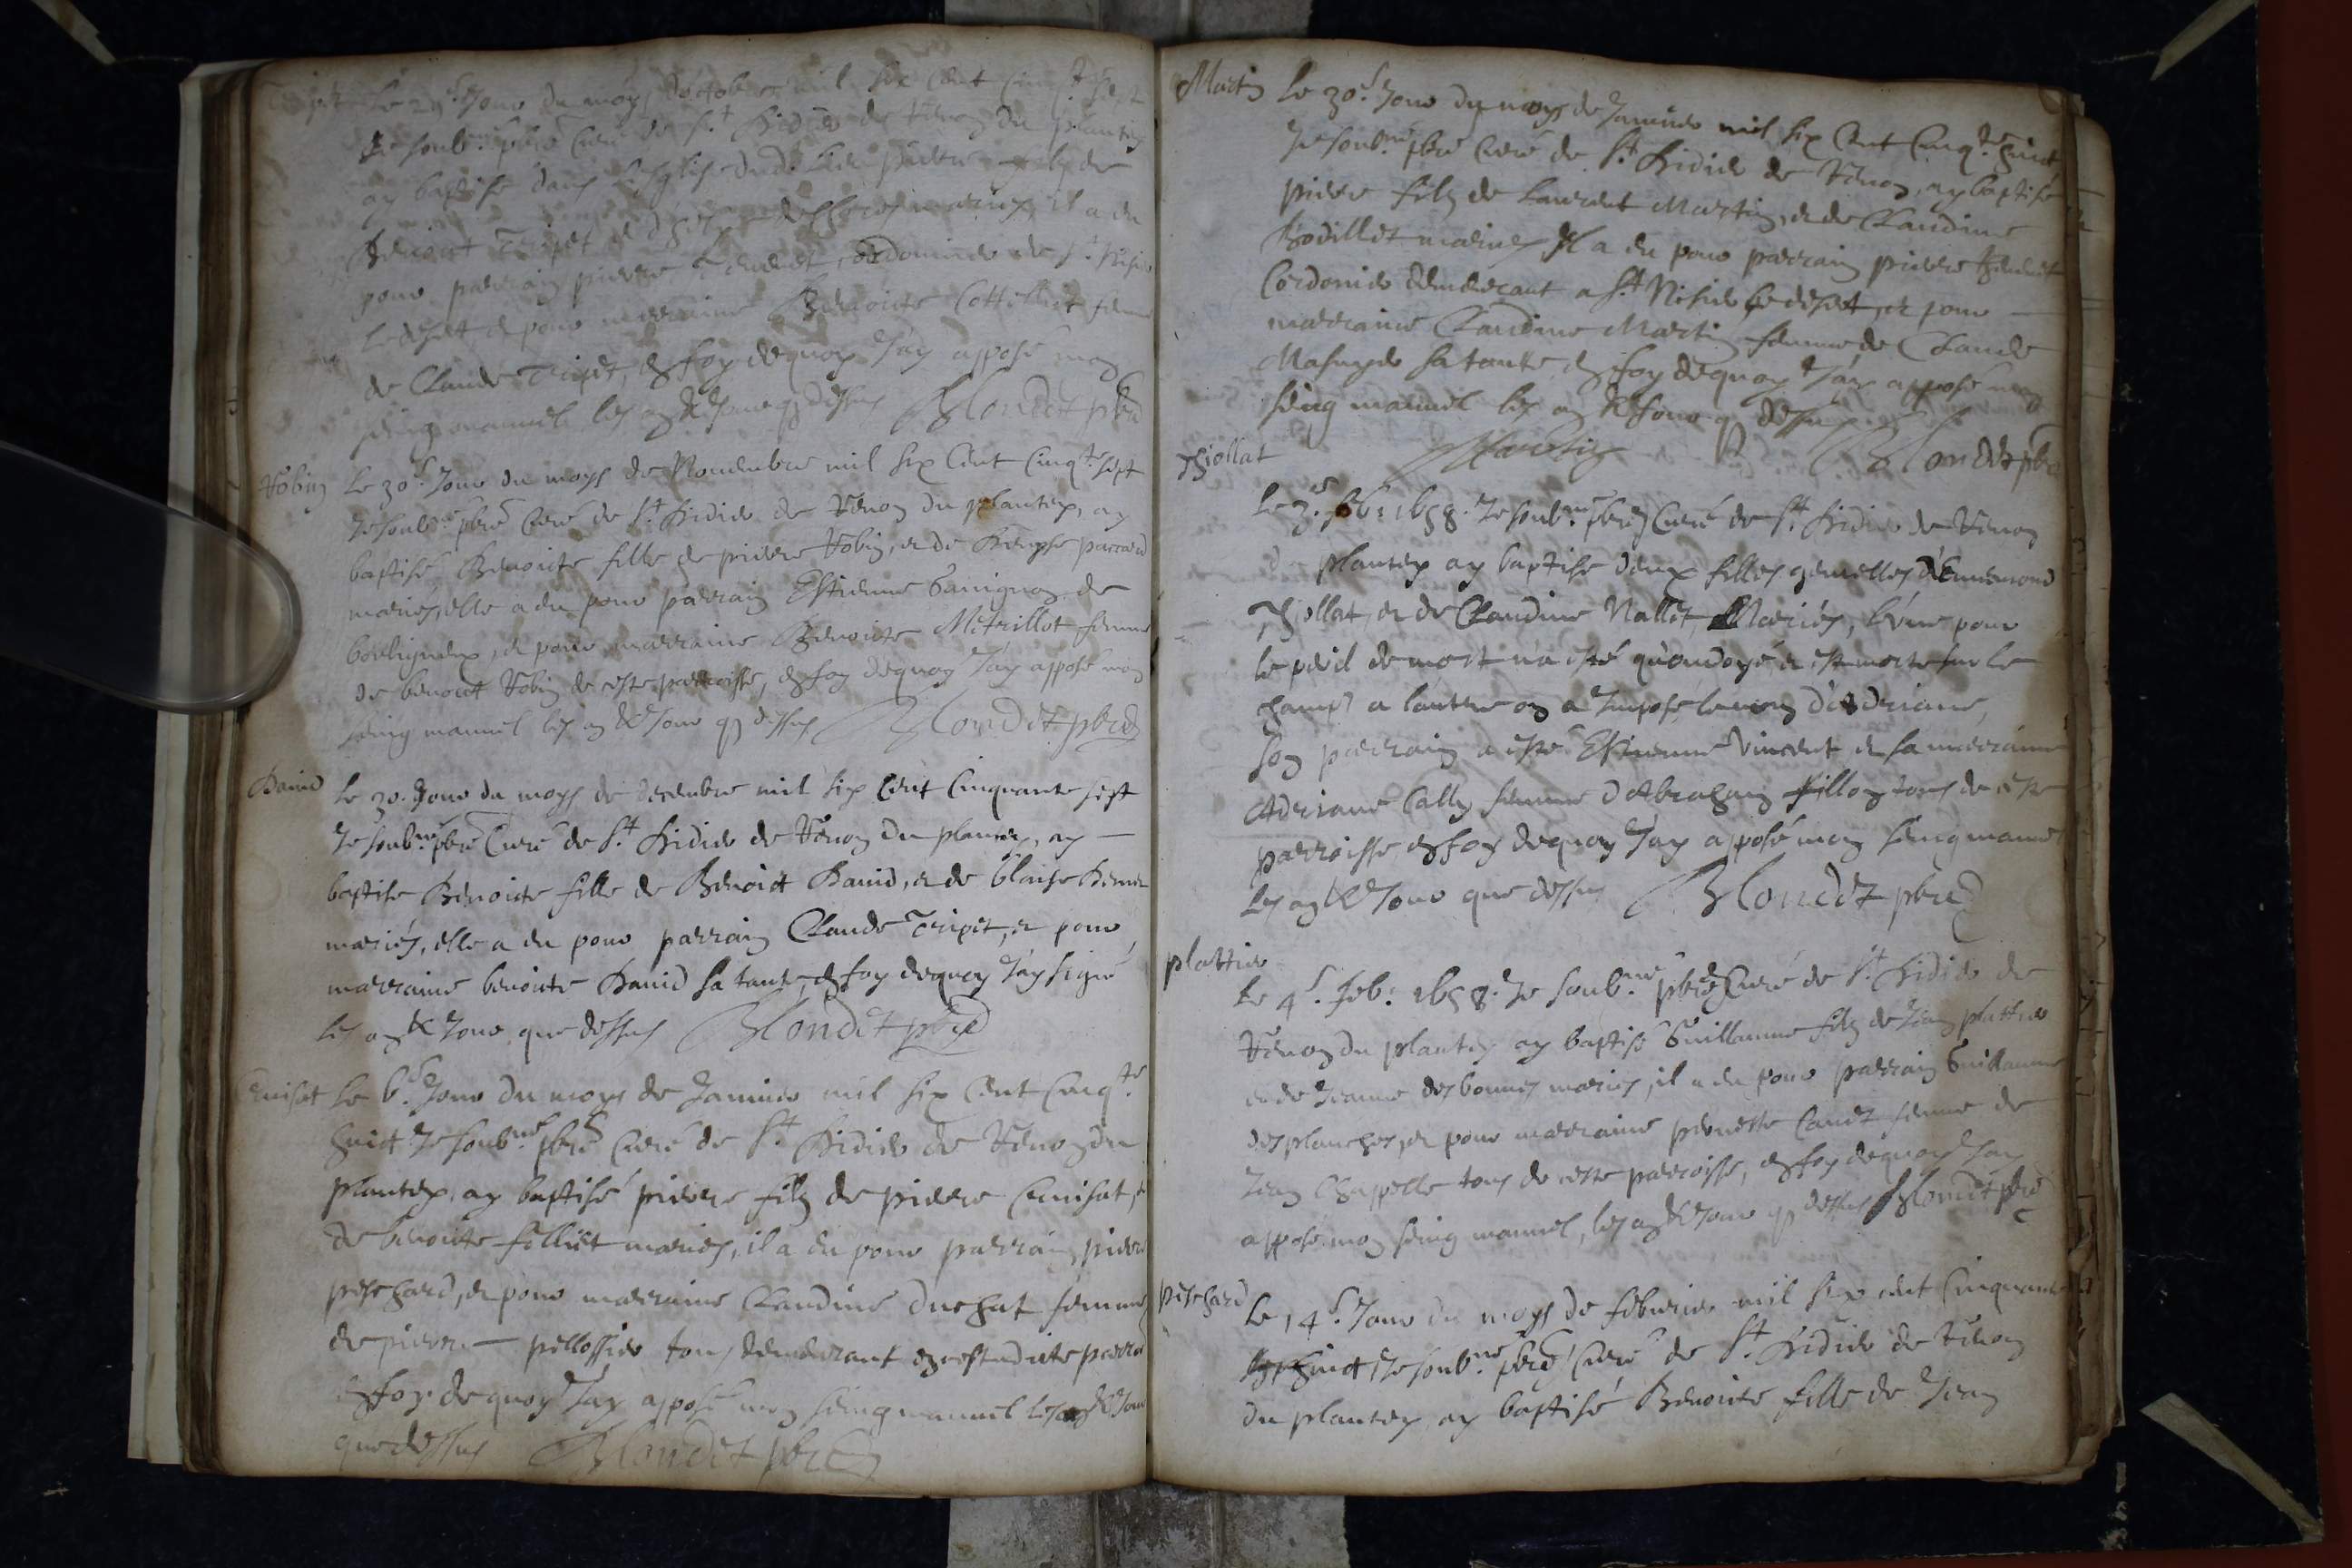 Le 29e Jour du moys d'octobre mil six Cent Cinqte sept
Je soubne pbre Curé de St Lidier de Renon du plantey
ay baptisé dans l'esglise dud. lieu pierre filz de
Benoict Tripet et d' mariés, il a eu
pour parrain pierre Thenenet, Cordonier de St Nisier
le desert et pour marraine Benoite Cottellet femme
de Claude Tripet, en foy dequoy J'ay apposé mon
seing manuel les an & Jour q dessus Blondet pbre
Robin
Le 30e Jour du moys de Novembre mil six Cent Cinqte sept
Je soubne pbre Curé de St Lidier de Renon du plantey, ay
baptisé Benoite fille de pierre Robin, et de
mariés, elle a eu pour parrain Estienne Savignon de
bouligneux, et pour marraine Benoite Metrillot femme
de benoict Robin de ceste parroisse, en foy dequoy J'ay apposé mon
seing manuel les an & Jour q dessus Blondet pbre
David
Le 30. Jour du moys de decembre mil six Cent Cinquante sept
Je soubne pbre Curé de St Lidier de Renon du plantey, ay
baptise Benoite fille de Benoict David, et de blaise
mariés, elle a eu pour parrain Claude Tripet, et pour
marraine benoite David sa tante, en foy dequoy J'ay signé
les an & Jour que dessus Blondet pbre
Cuisat
Le 6e Jour du moys de Janvier mil six Cent Cinqte
huict Je soubne pbre Curé de St Lidier de Renon du
plantey, ay baptisé pierre filz de pierre Cuisat, et
de benoitte folliet mariés, il a eu pour parrain pierre
peschard, et pour marraine Claudine duchat femme
de pierre pellossier tous demeurant en cestedicte parroi
en foy de quoy J'ay apposé mon seing manuel les an & Jour
que dessus Blondet pbre
Martin
Le 30e Jour du moys de Janvier mil six Cent Cinqte huict
Je soubne pbre Curé de St Lidier de Renon, ay baptisé
pierre filz de Laurent Martin, et de Claudine
Bodillet mariés, Il a eu pour parrain pierre Thenenet
Cordonier demeurant a St Nisier le desert, et pour
marraine Claudine Martin femme de Claude
Masuyer sa tante en foy dequoy J'ay apposé mon
seing manuel les an & Jour q dessus
Martin Blondet pbre
Thiollat
Le 3e feb: 1658. Je soubne pbre Curé de St Lidier de Renon
du plantey ay baptise deux filles gemelles d'Ennemond
Thiollat, et de Claudine Nallet Mariés, l'une pour
le peril de mort n'a esté qu'ondoyé et est morte sur le
champ a lautre on a Imposé le nom d'Adriane,
Son parrain a esté Estienne Vincent et sa marraine
Adriane Cally femme d'Abraham fillon tous de ceste
parroisse, en foy dequoy J'ay apposé mon seing manuel
les an & Jour que dessus Blondet pbre
plattier
Le 4e. feb: 1658. Je soubne pbre Curé de St Lidier de
Renon du plantey ay baptisé Guillaume filz de Jean plattier
et de Jeanne desbonnes mariés, il a eu pour parrain Guillaume
desplanches, et pour marraine pernette Canet femme de
Jean Chappelle tous de ceste parroisse, en foy dequoy J'ay
apposé mon seing manuel, les an & Jour q dessus Blondet pbre
peschard
Le 14e Jour du moys de febvrier mil six cent Cinquante
huict Je soubne pbre Curé de St Lidier de Renon
du plantey, ay baptisé Benoite fille de Jean